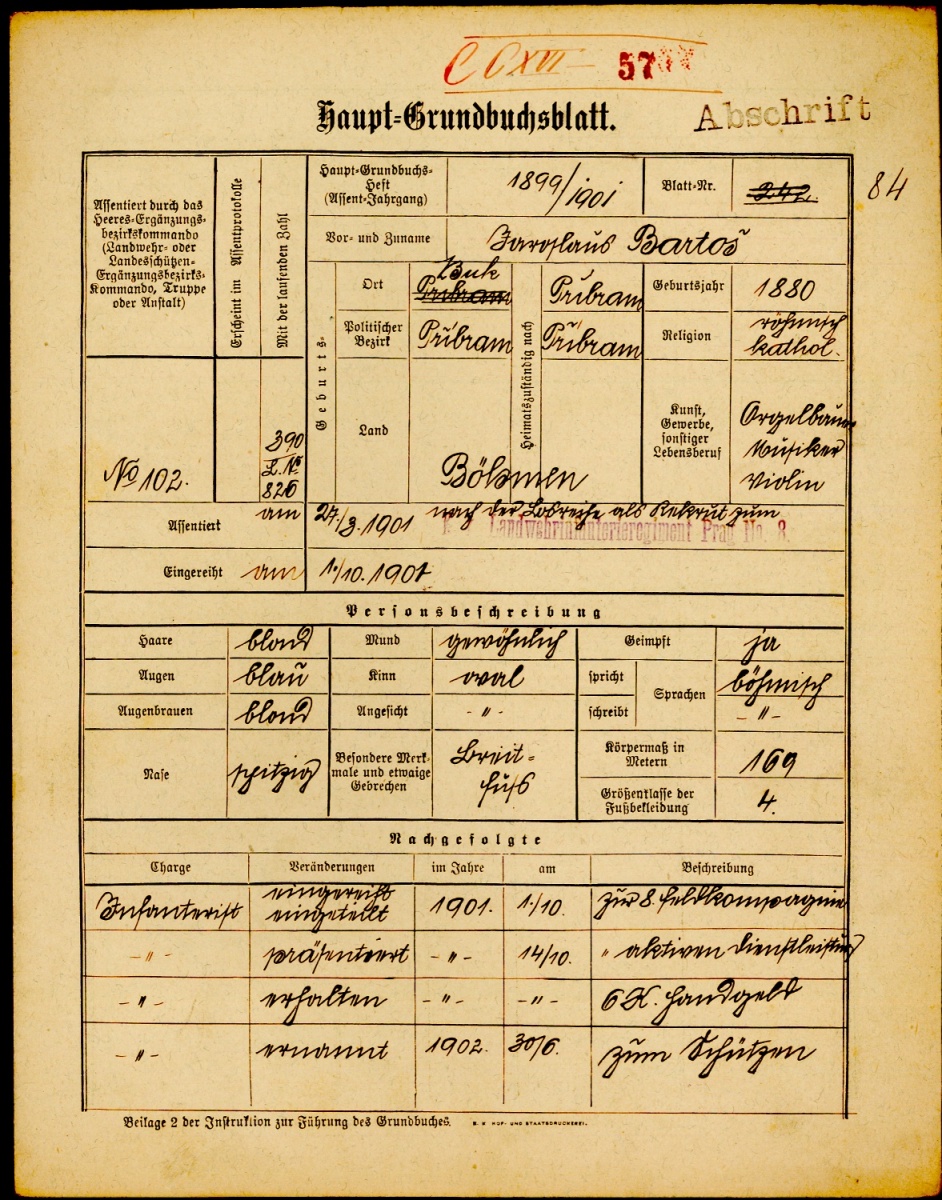 CCXVI — 57
Haupt=Grundbuchsblatt.
Abschrift
84
Assentiert durch das
Heeres-Ergänzungs-
bezirkskommando
(Landwehr- oder
Landesschützen-
Ergänzungsbezirks-
Kommando, Truppe
oder Anstalt)
Erscheint im Assentprotokolle
Mit der laufenden Zahl
No 102.
390
L. No
826
Haupt-Grundbuchs-
Heft
(Assent-Jahrgang)
1899/1901
Blatt-Nr.
242.
Vor- und Zuname
Jaroslaus Bartoš
Geburts-
Ort
Buk
Pribram
Heimatszuständig nach
Pribram
Geburtsjahr
1880
Politischer
Bezirk
Přibram
Přibram
Religion
röhmisch
kathol.
Land
Böhmen
Kunst,
Gewerbe,
sonstiger
Lebensberuf
Orgelbauer
Musiker
Violin
Assentiert
am
27./3. 1901
nach der Losreihe als Rekrut zum
Landwehrinfanterieregiment Prag No. 8.
Eingereiht
am
1./10. 1901
Personsbeschreibung
Haare
blond
Mund
gewöhnlich
Geimpft
ja
Augen
blau
Kinn
oval
spricht
Sprachen
böhmisch
Augenbrauen
blond
Angesicht
-„-
schreibt
-„-
Nase
spitzig
Besondere Merk-
male und etwaige
Gebrechen
Breit-
fuss
Körpermaß in
Metern
169
Größenklasse der
Fußbekleidung
4.
Nachgefolgte
Charge
Veränderungen
im Jahre
am
Beschreibung
Infanterist
eingereiht
eingeteilt
1901.
1./10.
zur 8. Feldkompagnie
-„-
präsentiert
-„-
14/10.
„ aktiven Dienstleistung
-„-
erhalten
-„-
-„-
6 K. Handgeld
-„-
ernannt
1902.
30/6.
zum Schützen
Beilage 2 der Instruktion zur Führung des Grundbuches.
K. K. HOF- UND STAATSDRUCKEREI.